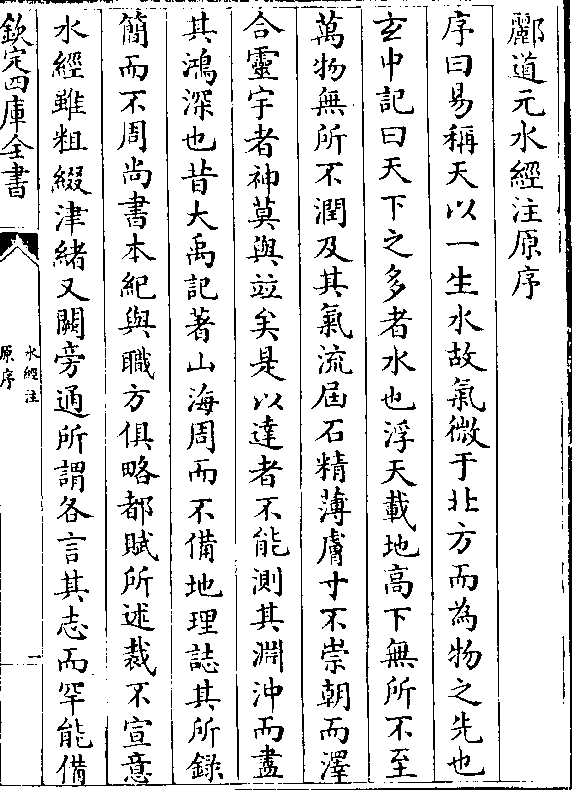 酈道元水經注原序
序曰易稱天以一生水故氣微于北方而為物之先也
玄中記曰天下之多者水也浮天載地高下無所不至
萬物無所不潤及其氣流屆石精薄膚寸不崇朝而澤
合靈宇者神莫與竝矣是以達者不能測其淵沖而盡
其鴻深也昔大禹記著山海周而不備地理誌其所錄
簡而不周尚書本紀與職方俱略都賦所述裁不宣意
水經雖粗綴津緒又闕旁通所謂各言其志而罕能備
欽定四庫全書
水經注
原序
一